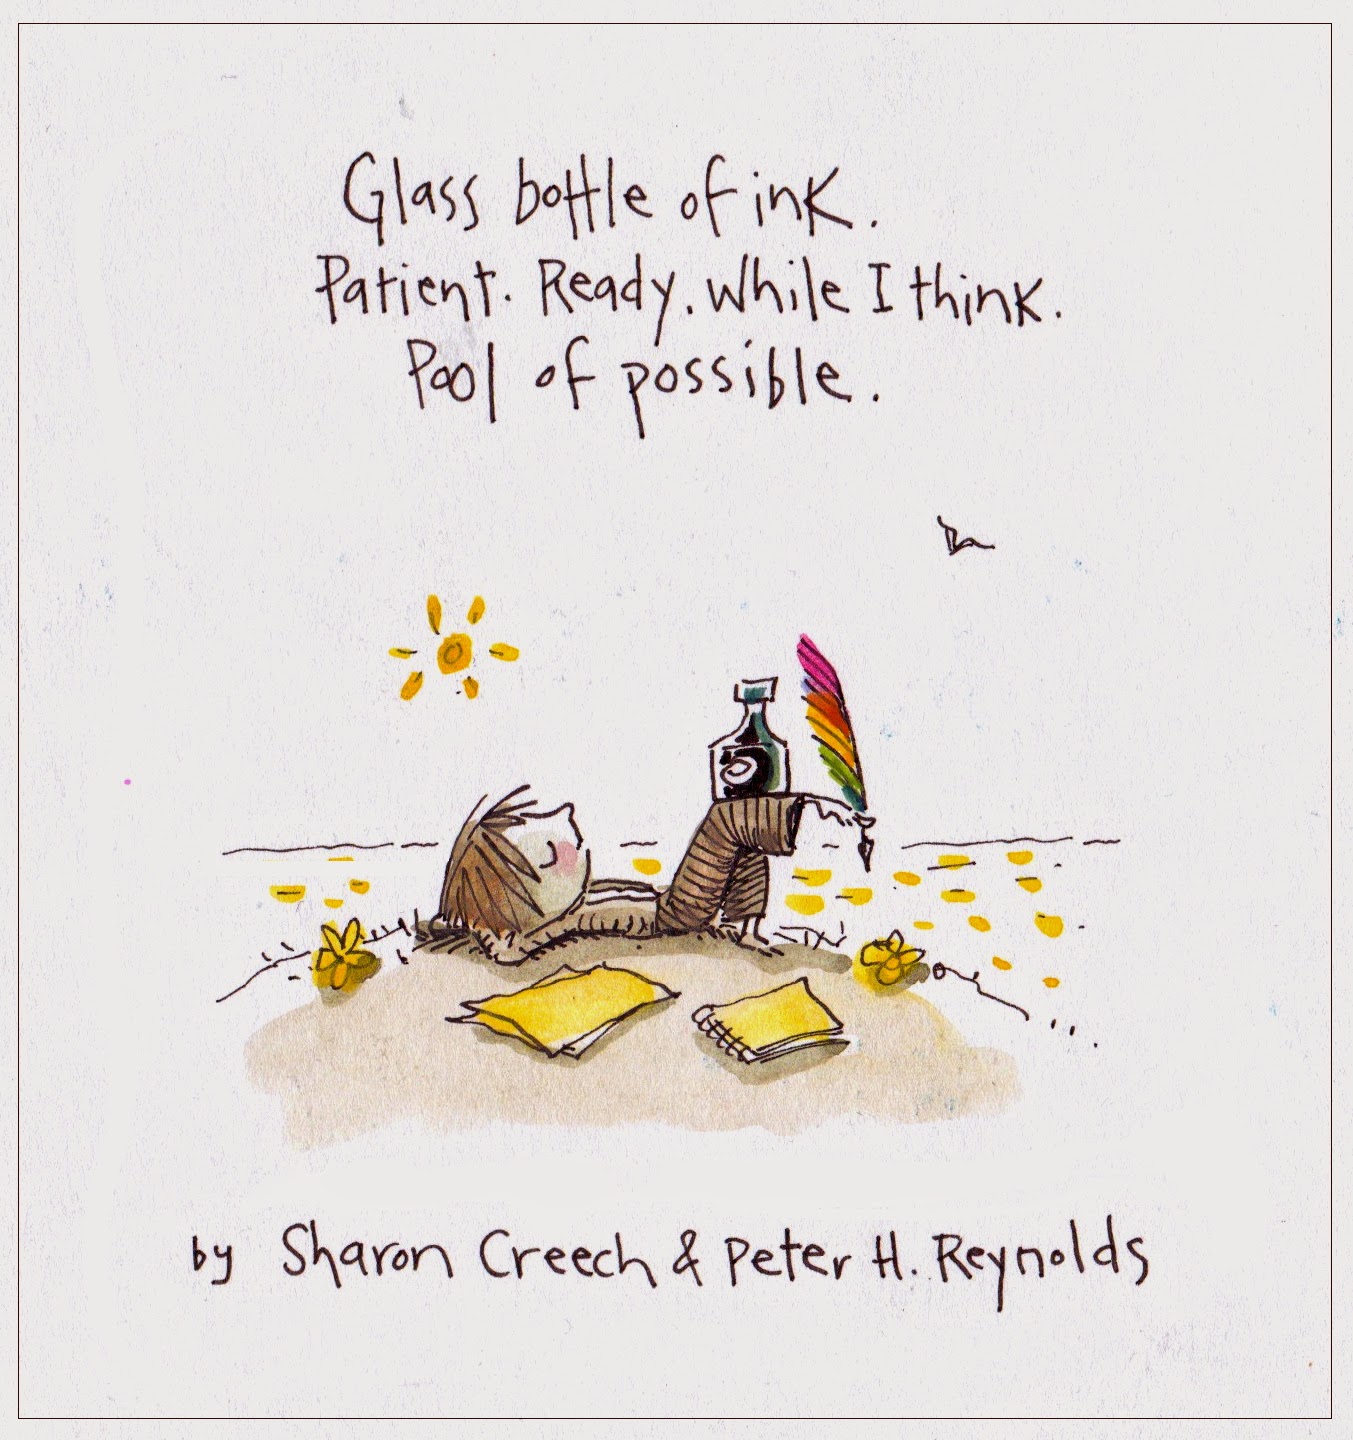 Glass bottle of ink.
Patient. Ready. While I think.
Pool of possible.
by Sharon Creech & Peter H. Reynolds